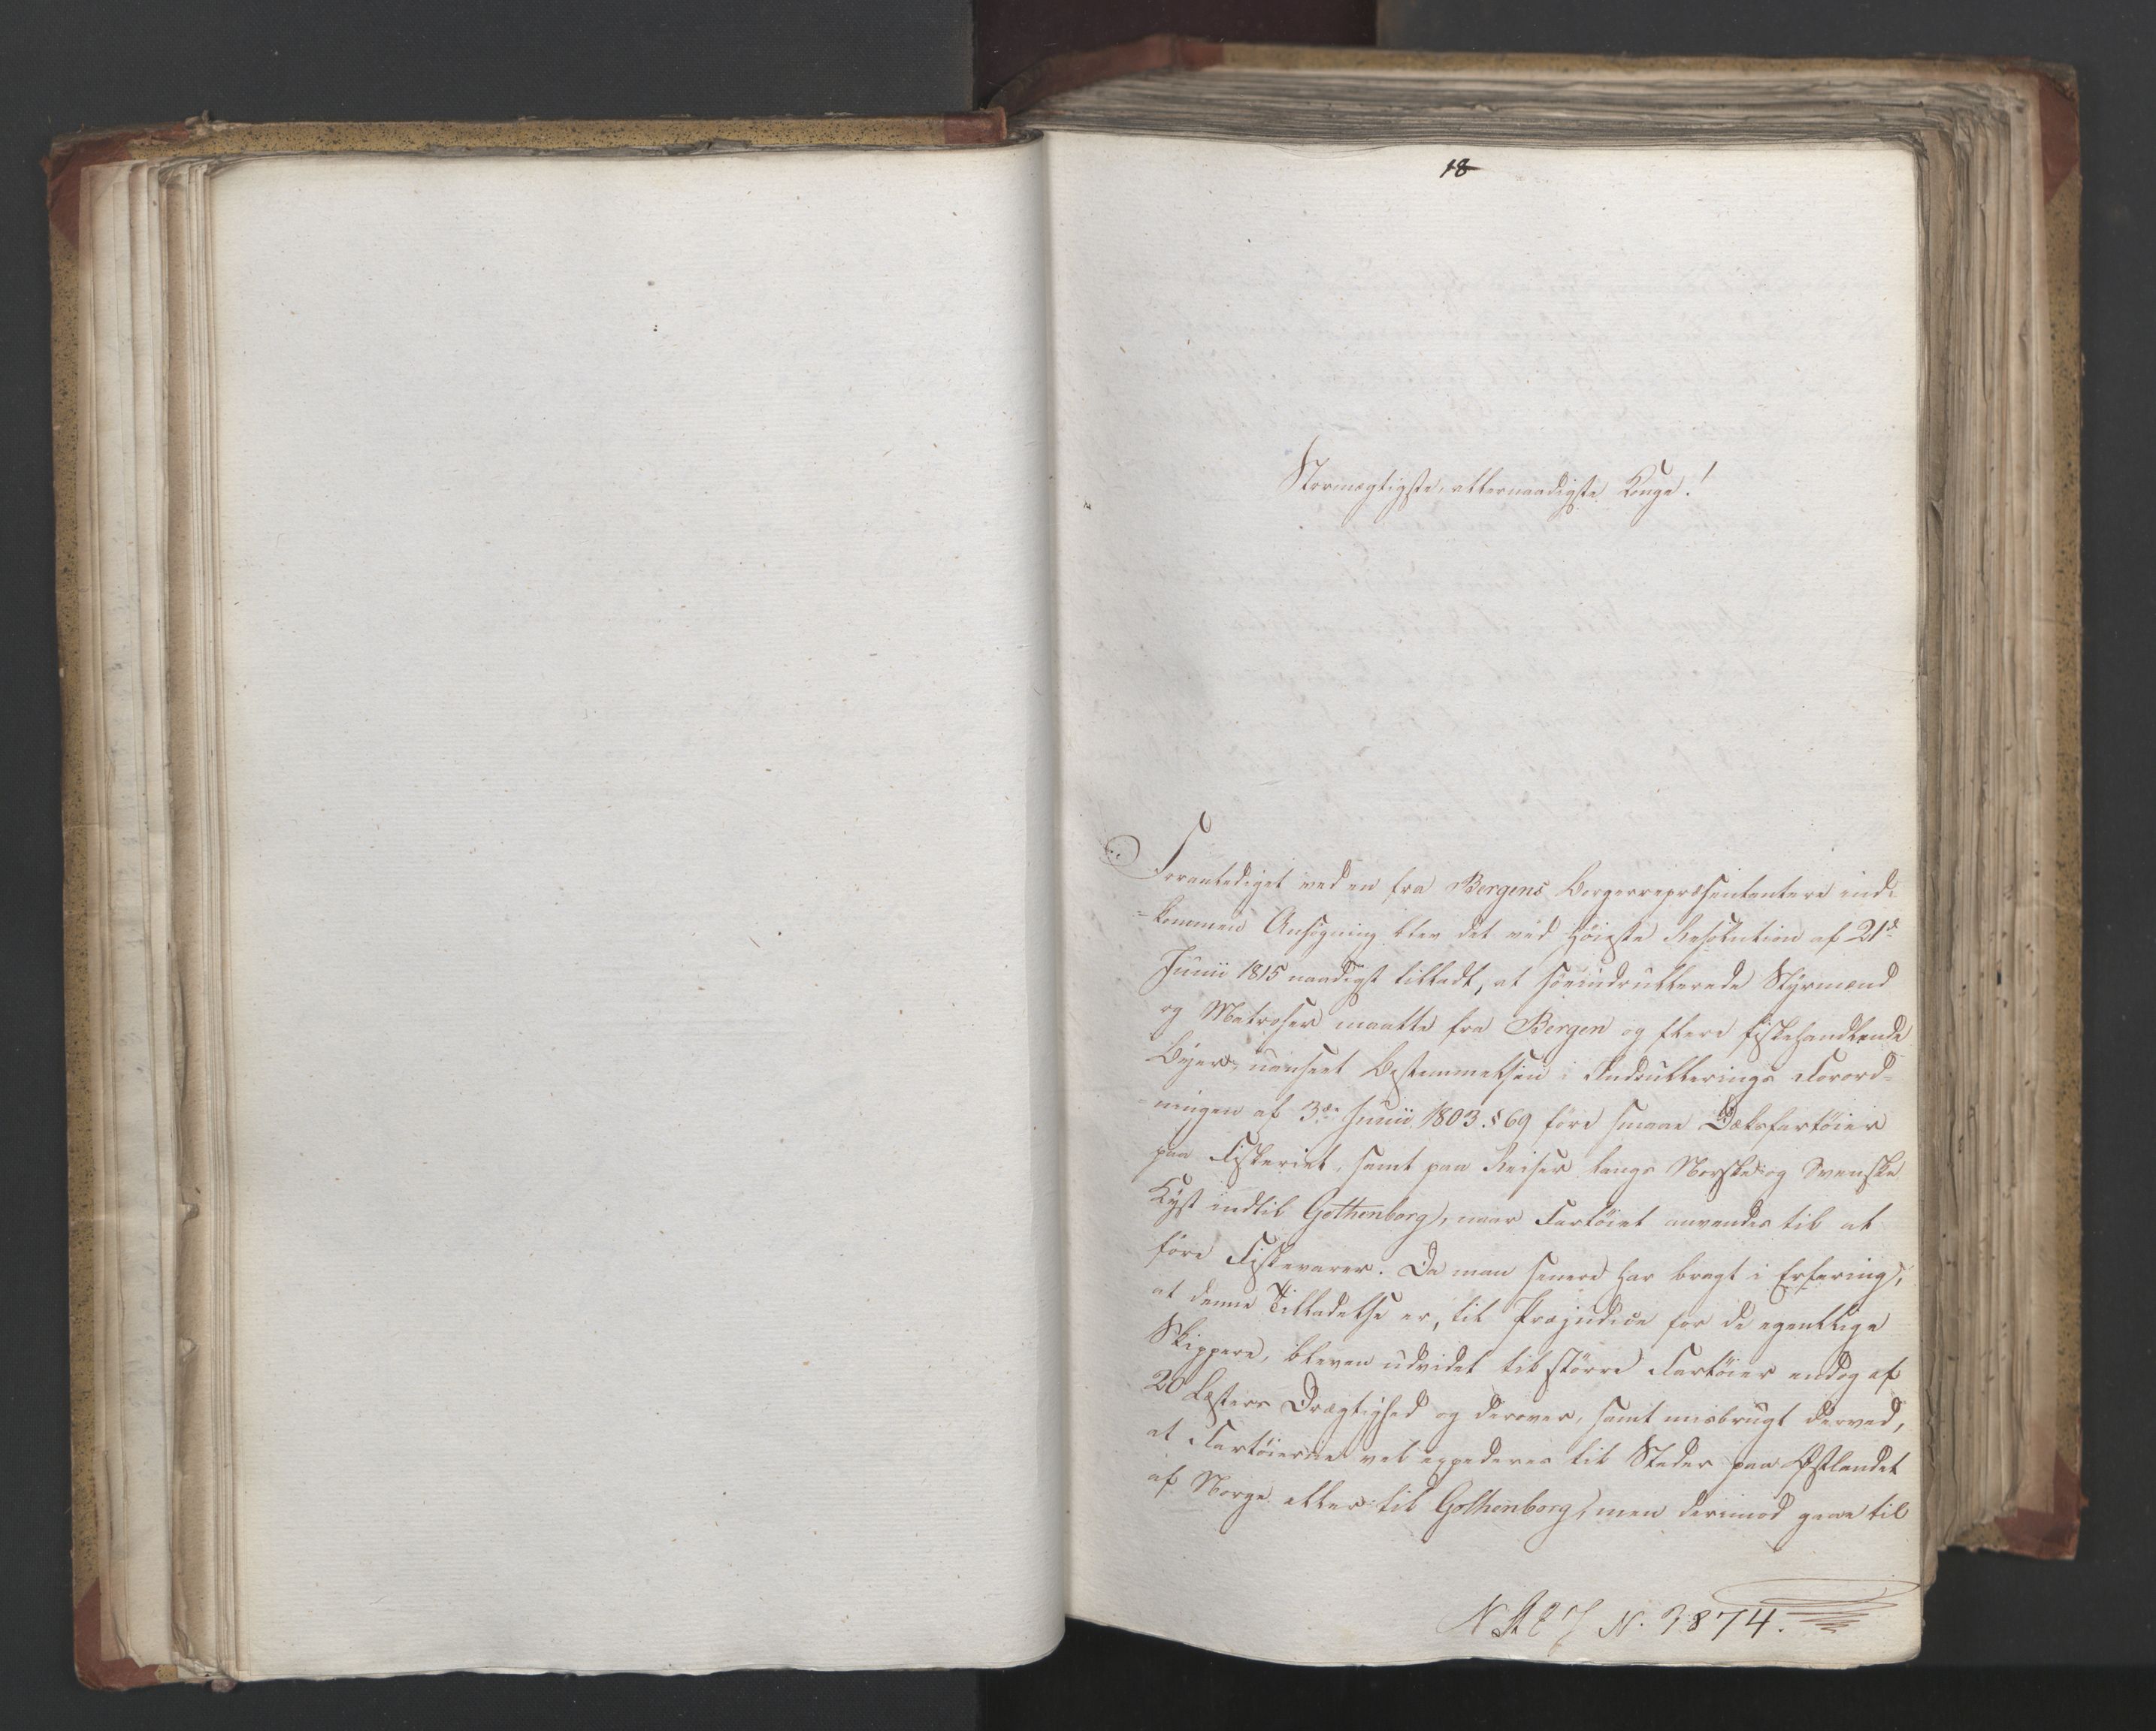 18
Stormægtigste, allernaadigste Konge!
Foranlediget ved en fra Bergens Borgerrepræsentantere ind-
=kommen Ansøgning blev det ved høieste Resolution af 21de
Junii 1815 naadigst tilladt, at søeindrullerede Styrmænd
og Matroser maatte fra Bergen og flere fiskehandlende
Byer, uanseet Bestemmelsen i Indrullerings Forord-
=ningen af 3die Junii 1803 § 69 føre smaae Dæksfartøier
paa Fiskeriet, samt paa Reiser langs Norske og Svenske
Kyst indtil Gothenborg, naar Fartøiet anvendes til at
føre Fiskevarer. Da man senere har bragt i Erfaring,
at denne Tilladelse er, til Præjudice for de egentlige
Skippere, bleven udvidet til større Fartøier endog af
20 Læsters Drægtighed og derover, samt misbrugt derved,
at Fartøierne vel expederes til Steder paa Østlandet
af Norge eller til Gothenborg, men derimod gaae til
N. 3874.